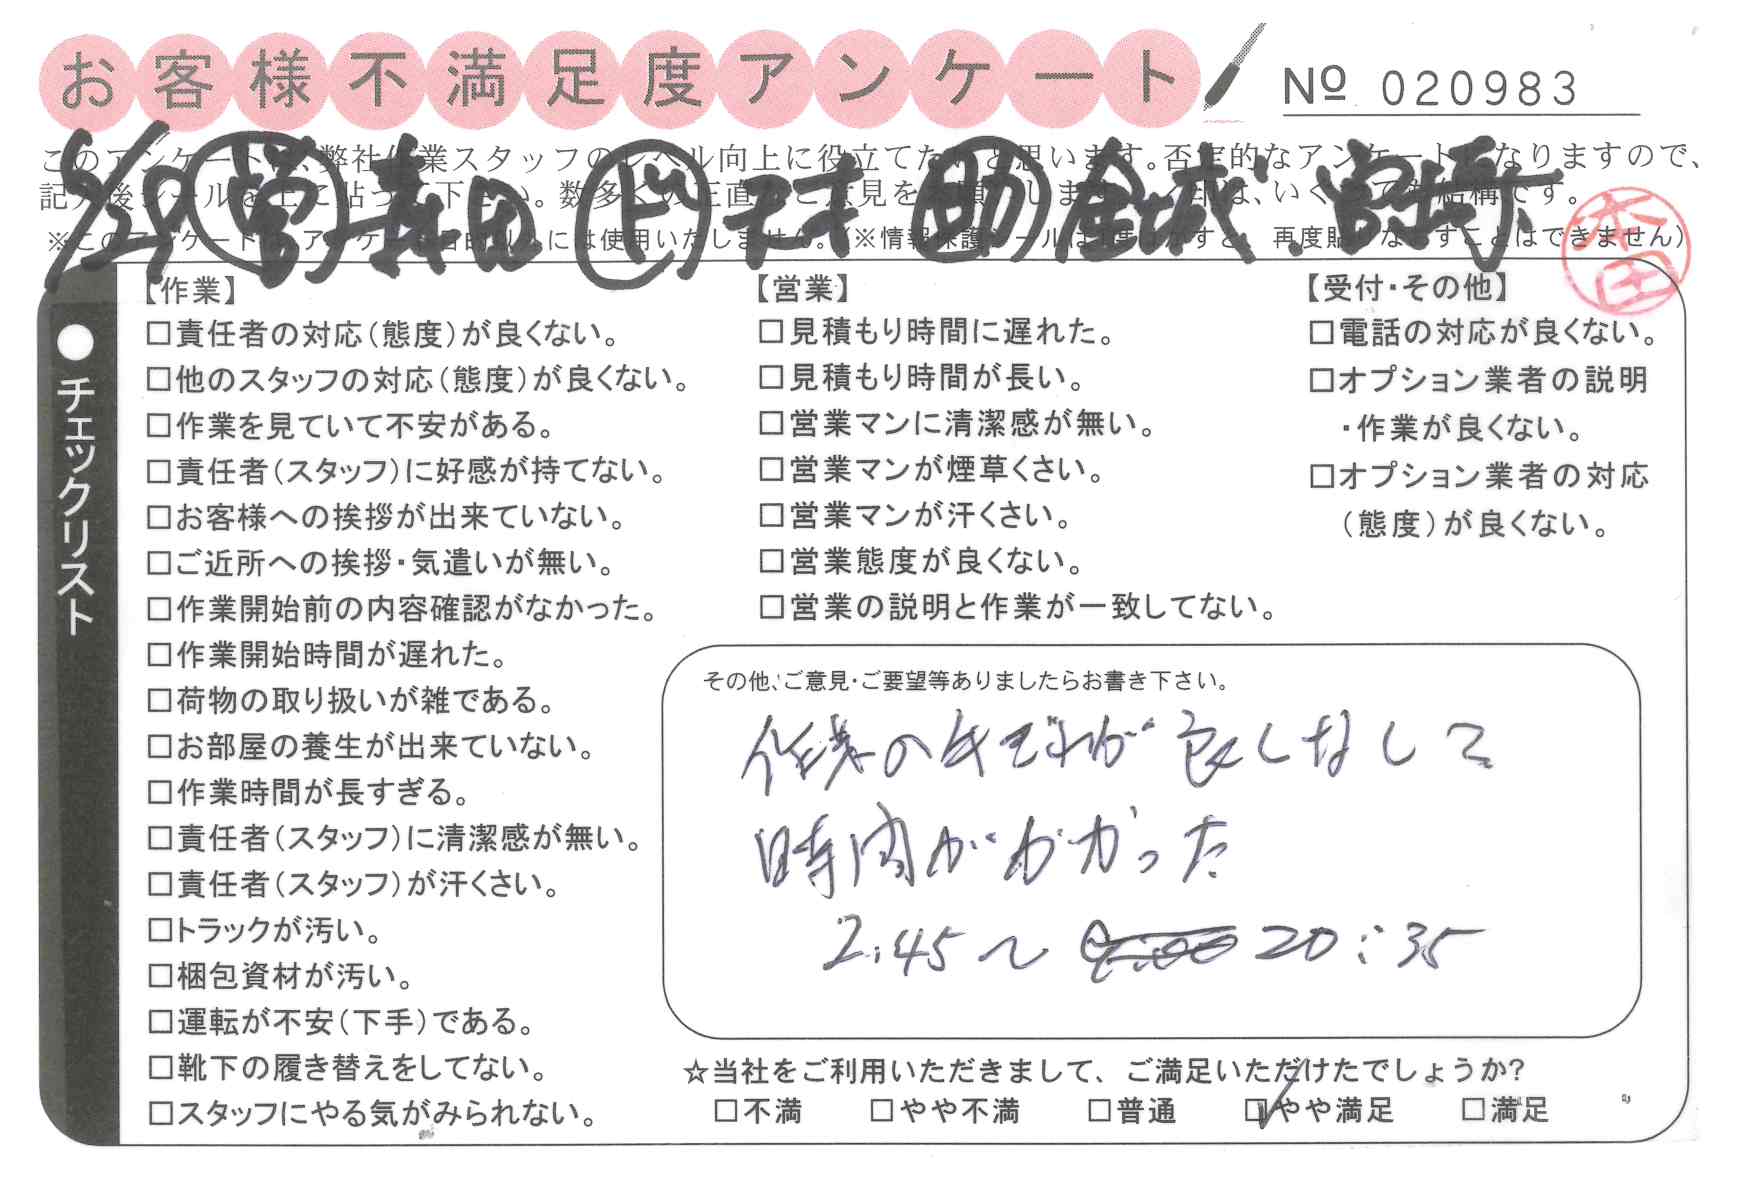 お客様不満足度アンケート
No 020983
このアンケートは、弊社作業スタッフのレベル向上に役立てたいと思います。否定的なアンケートになりますので、
記入後シールを上に貼って下さい。数多くの正直なご意見をお願いします。
※このアンケートは、アンケート目的以外には使用いたしません。(※情報保護シールは1度はがすと、再度貼りなおすことはできません)
6/29 営 森田 ド 木村 助 金城、宮崎
本田
●チェックリスト
【作業】
□責任者の対応(態度)が良くない。
□他のスタッフの対応(態度)が良くない。
□作業を見ていて不安がある。
□責任者(スタッフ)に好感が持てない。
□お客様への挨拶が出来ていない。
□ご近所への挨拶・気遣いが無い。
□作業開始前の内容確認がなかった。
□作業開始時間が遅れた。
□荷物の取り扱いが雑である。
□お部屋の養生が出来ていない。
□作業時間が長すぎる。
□責任者(スタッフ)に清潔感が無い。
□責任者(スタッフ)が汗くさい。
□トラックが汚い。
□梱包資材が汚い。
□運転が不安(下手)である。
□靴下の履き替えをしてない。
□スタッフにやる気がみられない。
【営業】
□見積もり時間に遅れた。
□見積もり時間が長い。
□営業マンに清潔感が無い。
□営業マンが煙草くさい。
□営業マンが汗くさい。
□営業態度が良くない。
□営業の説明と作業が一致してない。
【受付・その他】
□電話の対応が良くない。
□オプション業者の説明
・作業が良くない。
□オプション業者の対応
(態度)が良くない。
その他、ご意見・ご要望等ありましたらお書き下さい。
作業の
時間がかかった
2:45〜 20:35
☆当社をご利用いただきまして、ご満足いただけたでしょうか?
□不満 □やや不満 □普通 □やや満足 □満足